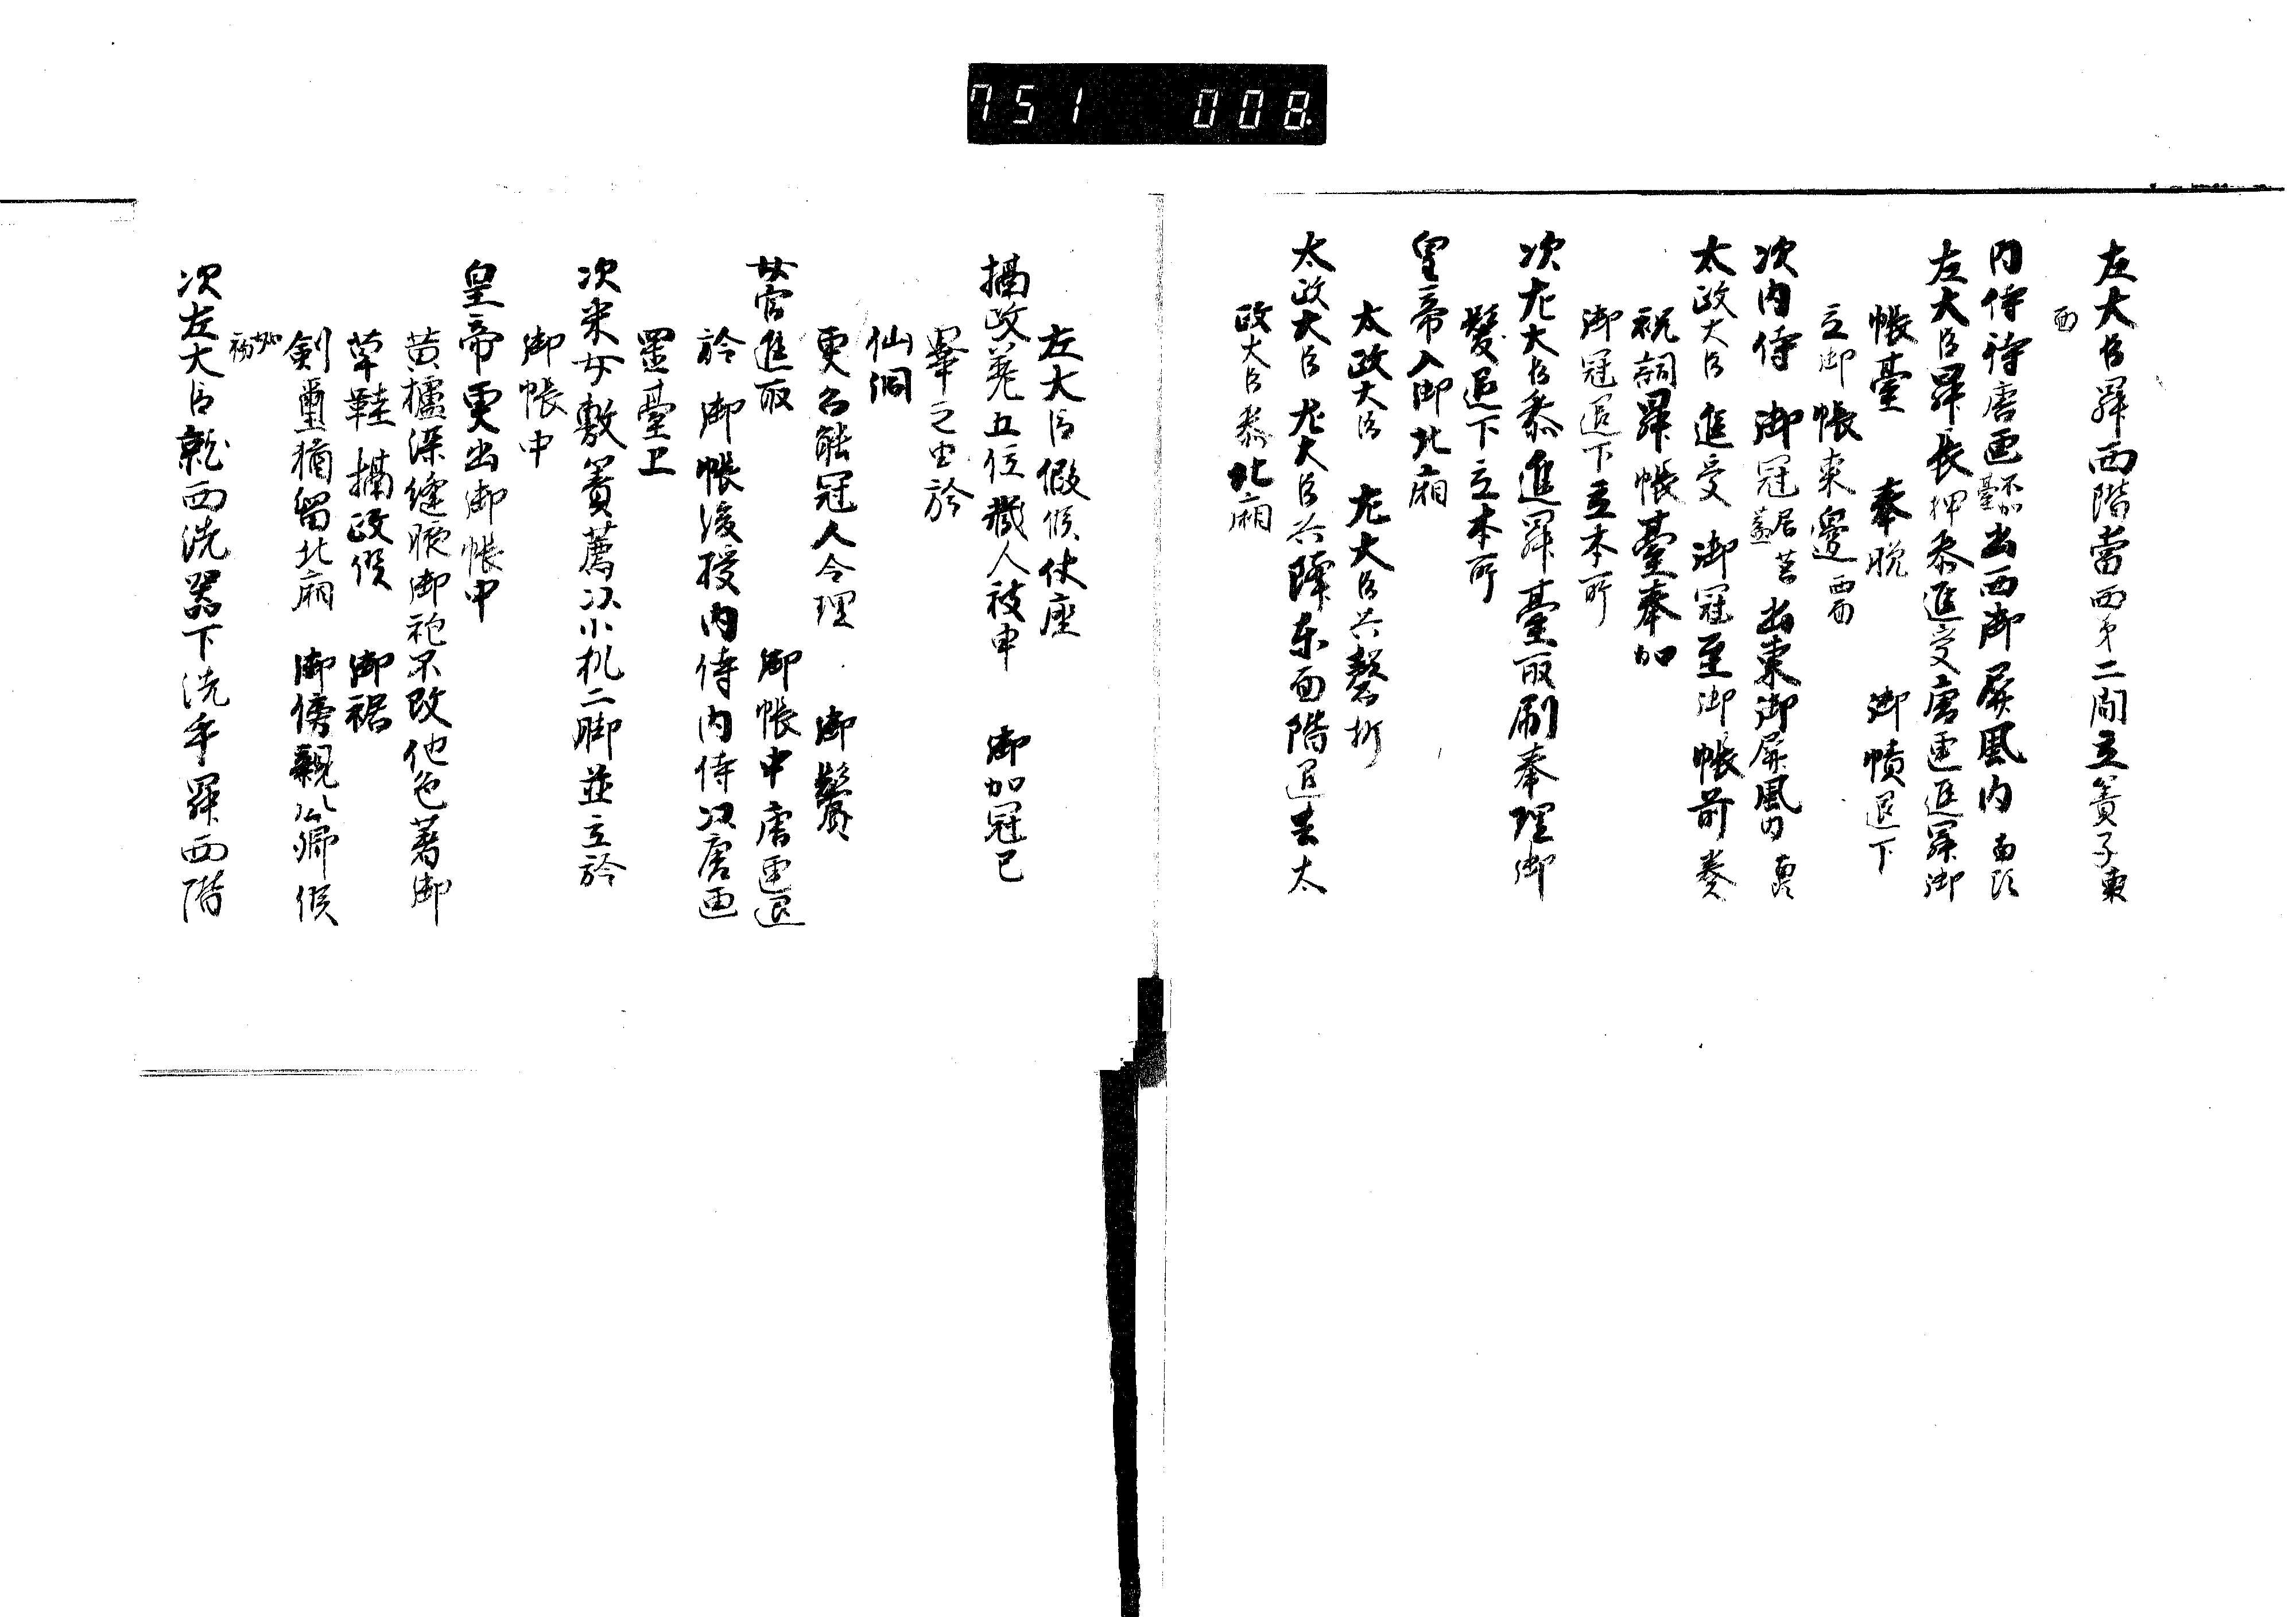 751 008
左大臣昇西階當西第二間立簀子東
面
内侍持唐匣不加臺出西御屏風内南頭
左大臣昇長押参進受唐匣進昇御
帳臺 奉脱 御幘退下
立御帳東邊西面
次内侍 御冠居筥蓋出東御屏風内南頭
太政大臣進受 御冠至御帳前奏
祝詞昇帳臺奉加
御冠退下立本所
次左大臣参進昇臺取刷奉理御
髪退下立本所
皇帝入御北廂
太政大臣 左大臣共磬折
太政大臣左大臣共降東面階退去太
政大臣参北廂
左大臣假候仗座
攝政差五位蔵人被申 御加冠已
畢之由於
仙洞
更召能冠人令理 御鬢
女官進取 御帳中唐匣退
於 御帳後授内侍内侍以唐匣
置臺上
次采女敷簀薦以小机二脚並立於
御帳中
皇帝更出御帳中
黄櫨染縫腋御袍不改他色著御
草鞋攝政候 御裾
劍璽猶留北廂 御傍親公卿候
如初
次左大臣就西洗器下洗手昇西階